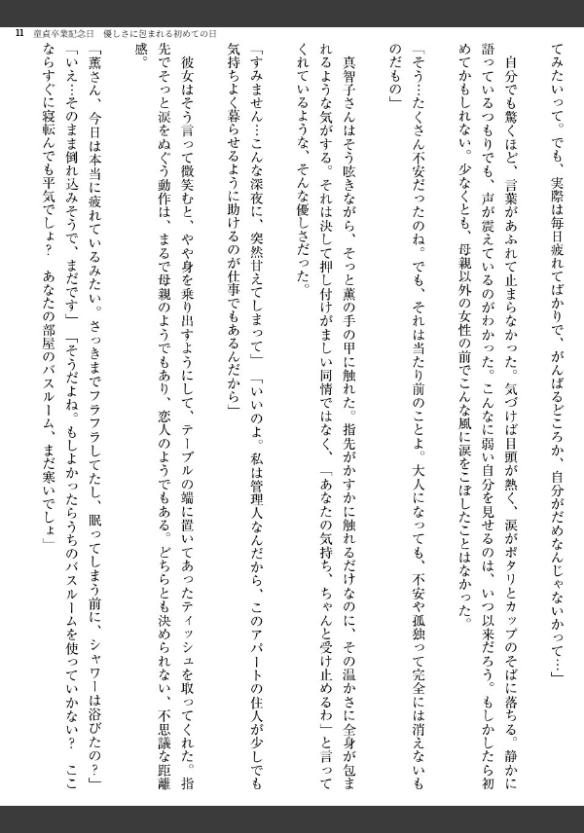 11 童貞卒業記念日 優しさに包まれる初めての日
てみたいって。でも、実際は毎日疲れてばかりで、がんばるどころか、自分がだめなんじゃないかって…」
自分でも驚くほど、言葉があふれて止まらなかった。気づけば目頭が熱く、涙がポタリとカップのそばに落ちる。静かに
語っているつもりでも、声が震えているのがわかった。こんなに弱い自分を見せるのは、いつ以来だろう。もしかしたら初
めてかもしれない。少なくとも、母親以外の女性の前でこんな風に涙をこぼしたことはなかった。
「そう…たくさん不安だったのね。でも、それは当たり前のことよ。大人になっても、不安や孤独って完全には消えないも
のだもの」
真智子さんはそう呟きながら、そっと薫の手の甲に触れた。指先がかすかに触れるだけなのに、その温かさに全身が包ま
れるような気がする。それは決して押し付けがましい同情ではなく、「あなたの気持ち、ちゃんと受け止めるわ」と言って
くれているような、そんな優しさだった。
「すみません…こんな深夜に、突然甘えてしまって」「いいのよ。私は管理人なんだから、このアパートの住人が少しでも
気持ちよく暮らせるように助けるのが仕事でもあるんだから」
彼女はそう言って微笑むと、やや身を乗り出すようにして、テーブルの端に置いてあったティッシュを取ってくれた。指
先でそっと涙をぬぐう動作は、まるで母親のようでもあり、恋人のようでもある。どちらとも決められない、不思議な距離
感。
「薫さん、今日は本当に疲れているみたい。さっきまでフラフラしてたし、眠ってしまう前に、シャワーは浴びたの？」
「いえ…そのまま倒れ込みそうで、まだです」「そうだよね。もしよかったらうちのバスルームを使っていかない？ ここ
ならすぐに寝転んでも平気でしょ？ あなたの部屋のバスルーム、まだ寒いでしょ」